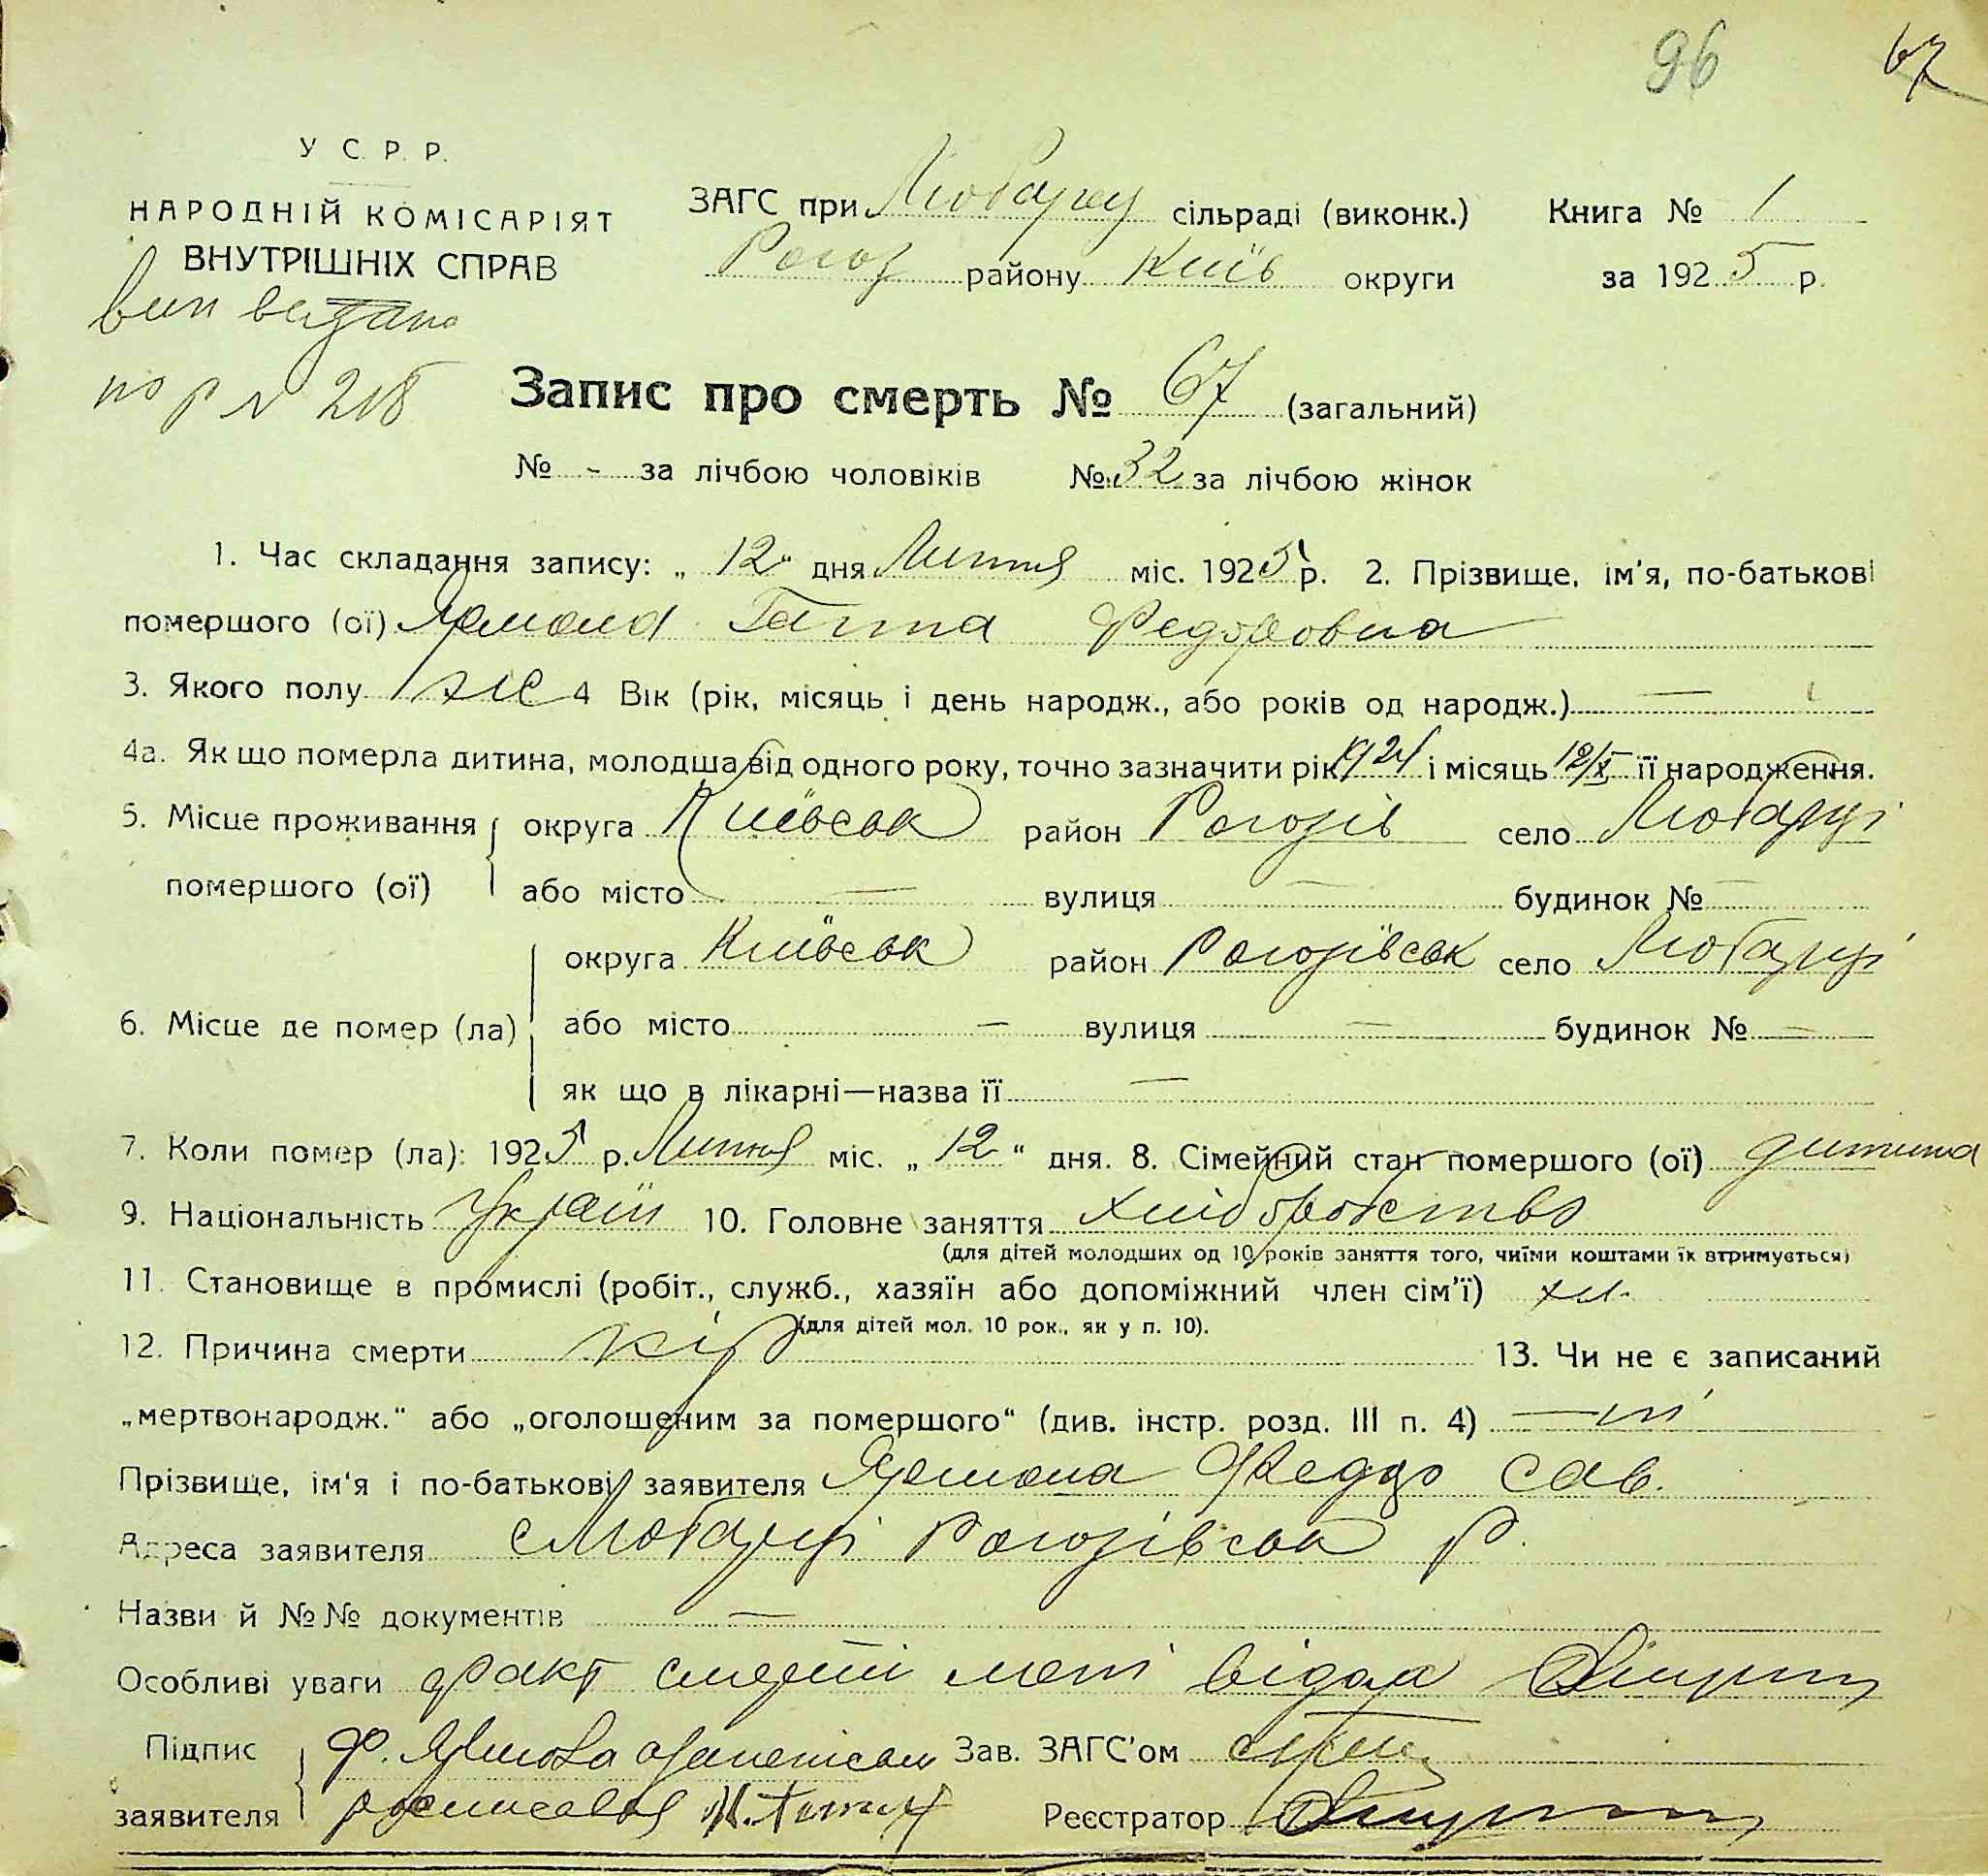 96 67
У С. Р. Р.
НАРОДНІЙ КОМІСАРІЯТ
ВНУТРІШНІХ СПРАВ
ЗАГС при Любарец сільраді (виконк.) Книга № 1
Рогоз району Київ округи за 1925 р.
вип видано
по р N
Запис про смерть № 67 (загальний)
№ - за лічбою чоловіків № 32 за лічбою жінок
1. Час складання запису: „ 12 “ дня Липня міс. 1925 р. 2. Прізвище, ім'я, по-батькові
помершого (ої) Ярмола Ганна Федоровна
3. Якого полу ж 4 Вік (рік, місяць і день народж., або років од народж.) —
4а. Як що померла дитина, молодша від одного року, точно зазначити рік 1924 і місяць 12/X її народження.
5. Місце проживання округа Київськ район Рогозів село Любарці
помершого (ої) або місто — вулиця — будинок № —
округа Київськ район Рогозівськ село Любарці
6. Місце де помер (ла) або місто — вулиця — будинок № —
як що в лікарні—назва її —
7. Коли помер (ла): 1925 р. Липня міс. „ 12 “ дня. 8. Сімейний стан помершого (ої) дитина
9. Національність Україн 10. Головне заняття хліборобство
(для дітей молодших од 10 років заняття того, чиїми коштами їх втримується)
11. Становище в промислі (робіт., служб., хазяїн або допоміжний член сім'ї) хл.
(для дітей мол. 10 рок., як у п. 10).
12. Причина смерти кір 13. Чи не є записаний
„мертвонародж.“ або „оголошеним за помершого“ (див. інстр. розд. III п. 4) — ні
Прізвище, ім'я і по-батькові заявителя Ярмола Федор Сав.
Адреса заявителя с Любарці Рогозівськ Р.
Назви й №№ документів —
Особливі уваги факт смерті мені відом
Підпис Ф. Ярмола Зав. ЗАГС'ом
заявителя росписався Реєстратор